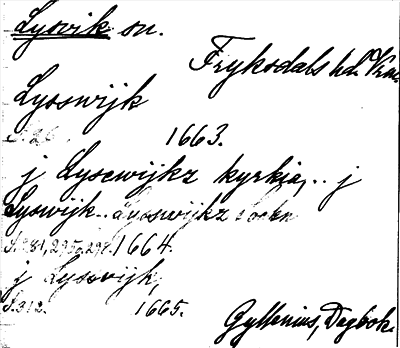 Lysvik sn.
Fryksdals hd. Vrm.
Lysswijk
S. 26 1663.
j Lysewijkz kyrkia,.. j
Lyswijk.. Lysswijkz Sockn
S. 281, 295, 298. 1664.
j Lysswijk,
S. 312. 1665.
Gyllenius, Dagbok.